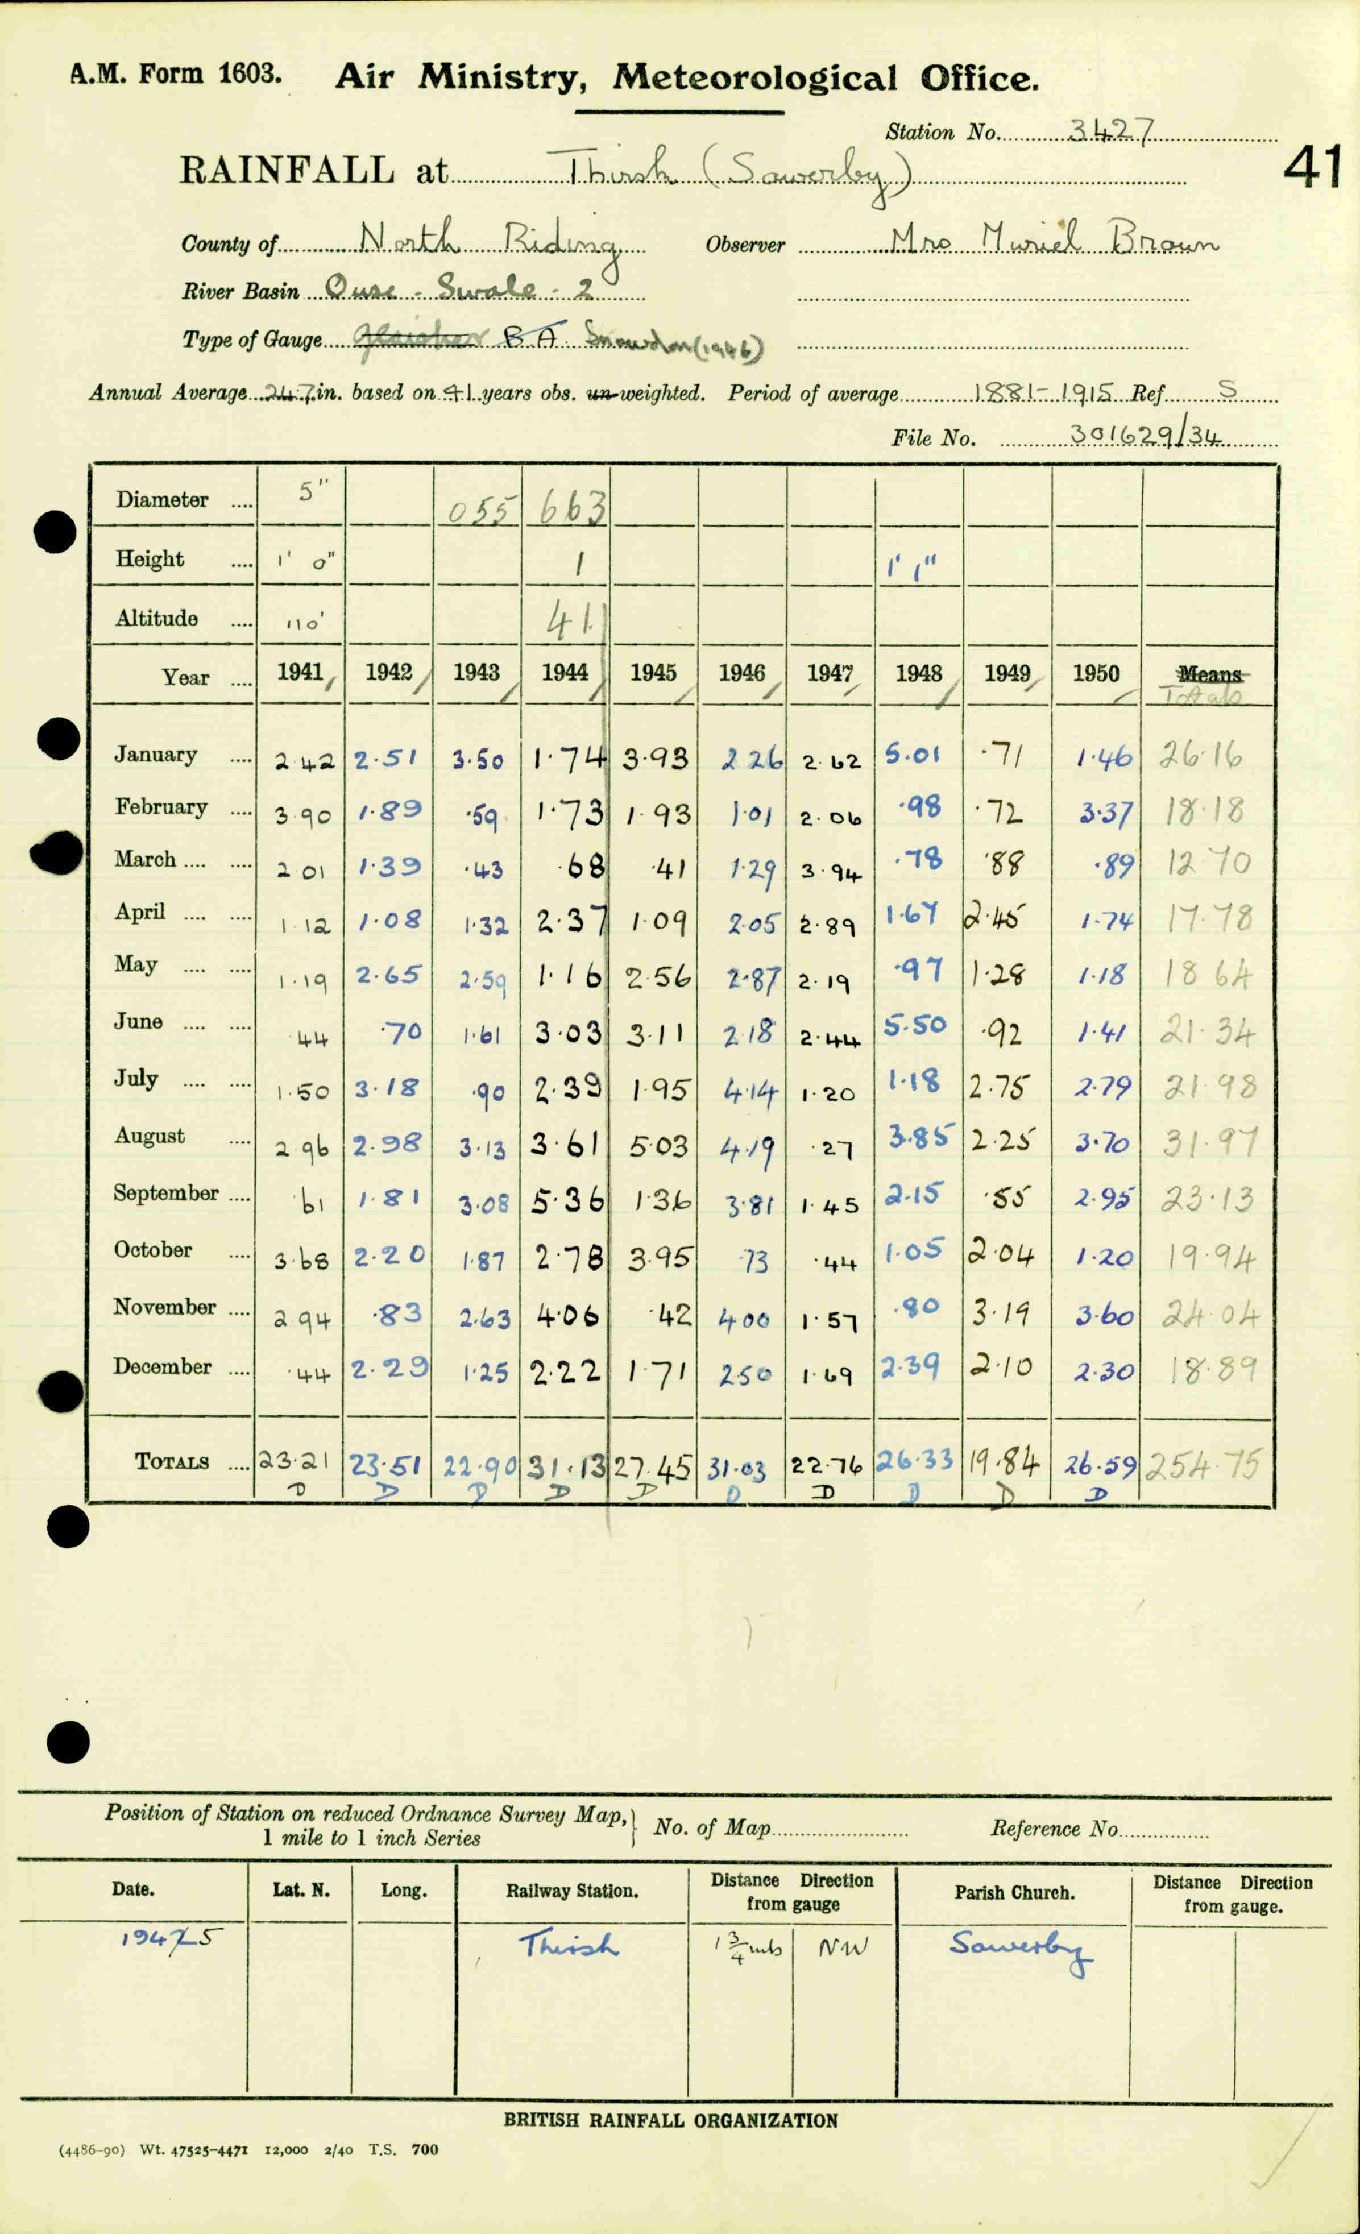 A.M. Form 1603. Air Ministry, Meteorological Office.
Station No. 3427
41
RAINFALL at Thirsk (Sowerby)
County of North Riding Observer Mrs Muriel Brown
River Basin Ouse - Swale - 2
Type of Gauge Glaisher B A Snowdon (1946)
Annual Average 24.7 in. based on 41 years obs. un-weighted. Period of average 1881-1915 Ref S
File No. 301629/34
Diameter .... 5" 055 663
Height .... 1' 0" 1 1' 1"
Altitude .... 110' 41
Year .... 1941 1942 1943 1944 1945 1946 1947 1948 1949 1950 Means
Totals
January .... 2.42 2.51 3.50 1.74 3.93 2 26 2.62 5.01 .71 1.46 26.16
February .... 3.90 1.89 .59 1.73 1.93 1.01 2.06 .98 .72 3.37 18.18
March .... .... 2 01 1.39 .43 .68 .41 1.29 3.94 .78 .88 .89 12.70
April .... .... 1.12 1.08 1.32 2.37 1.09 2.05 2.89 1.67 2.45 1.74 17.78
May .... .... 1.19 2.65 2.59 1.16 2.56 2.87 2.19 .97 1.28 1.18 18 64
June .... .... .44 .70 1.61 3.03 3.11 2.18 2.44 5.50 .92 1.41 21.34
July .... .... 1.50 3.18 .90 2.39 1.95 4.14 1.20 1.18 2.75 2.79 21.98
August .... 2.96 2.98 3.13 3.61 5.03 4.19 .27 3.85 2.25 3.70 31.97
September .... .61 1.81 3.08 5.36 1.36 3.81 1.45 2.15 .55 2.95 23.13
October .... 3.68 2.20 1.87 2.78 3.95 .73 .44 1.05 2.04 1.20 19.94
November .... 2 94 .83 2.63 4.06 .42 4.00 1.57 .80 3.19 3.60 24.04
December .... .44 2.29 1.25 2.22 1.71 2.50 1.69 2.39 2.10 2.30 18.89
TOTALS .... 23.21 23.51 22.90 31.13 27.45 31.03 22.76 26.33 19.84 26.59 254.75
D D D D D D D D D D
Position of Station on reduced Ordnance Survey Map, } No. of Map Reference No.
1 mile to 1 inch Series
Date. Lat. N. Long. Railway Station. Distance Direction from gauge Parish Church. Distance Direction from gauge.
1945 Thirsk 1 3/4 mls NW Sowerby
BRITISH RAINFALL ORGANIZATION
(4486-90) Wt. 47525-4471 12,000 2/40 T.S. 700